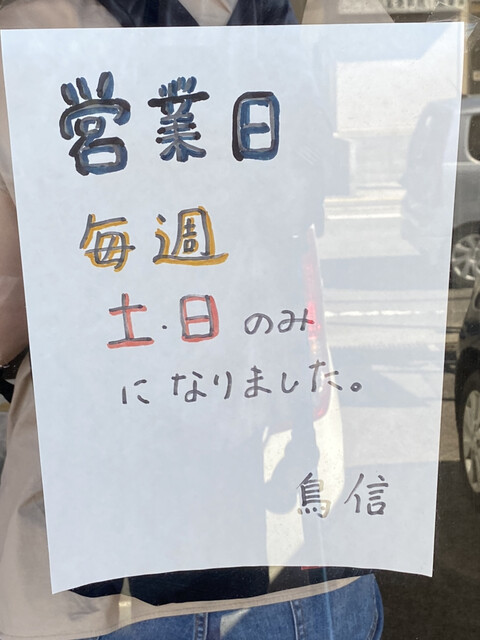 営業日
毎週
土・日のみ
になりました。
鳥信